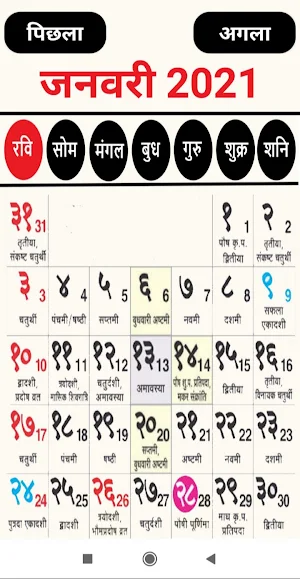 पिछला
अगला
जनवरी 2021
रवि सोम मंगल बुध गुरु शुक्र शनि
३१ 31 १ 1 २ 2
तृतीया, संकष्ट चतुर्थी पौष कृ.प. द्वितीया तृतीया, संकष्ट चतुर्थी
३ 3 ४ 4 ५ 5 ६ 6 ७ 7 ८ 8 ९ 9
चतुर्थी पंचमी/षष्ठी सप्तमी बुधवारी अष्टमी नवमी दशमी सफला एकादशी
१० 10 ११ 11 १२ 12 १३ 13 १४ 14 १५ 15 १६ 16
द्वादशी, प्रदोष व्रत त्रयोदशी, मासिक शिवरात्रि चतुर्दशी, अमावस्या अमावस्या पौष शु.प. प्रतिपदा, मकर संक्रांति द्वितीया तृतीया, विनायक चतुर्थी
१७ 17 १८ 18 १९ 19 २० 20 २१ 21 २२ 22 २३ 23
चतुर्थी पंचमी षष्ठी सप्तमी, बुधवारी अष्टमी अष्टमी नवमी दशमी
२४ 24 २५ 25 २६ 26 २७ 27 २८ 28 २९ 29 ३० 30
पुत्रदा एकादशी द्वादशी त्रयोदशी, भौमप्रदोष व्रत चतुर्दशी पौषी पूर्णिमा माघ कृ.प. प्रतिपदा द्वितीया